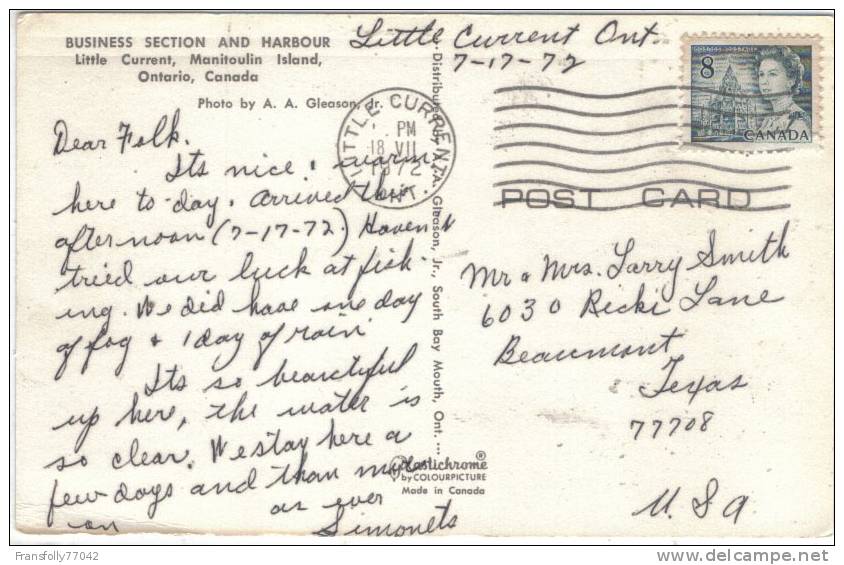 BUSINESS SECTION AND HARBOUR
Little Current, Manitoulin Island,
Ontario, Canada
Photo by A. A. Gleason, Jr.
Little Current Ont.
7-17-72
Dear Folk.
Its nice & warm
here to day. Arrived this
afternoon (7-17-72.) Haven't
tried our luck at fish-
ing. We did have one day
of fog & 1 day of rain.
Its so beautiful
up here, the water is
so clear. We stay here a
few days and than move
on
as ever
Simonets
Distributed by A. A. Gleason, Jr., South Bay Mouth, Ont. ...
LITTLE CURRENT
PM
18 VII
1972
ONT.
8
CANADA
POST CARD
Mr & Mrs. Larry Smith
6030 Ricki Lane
Beaumont,
Texas
77708
U.S.A
Plastichrome®
by COLOURPICTURE
Made in Canada
Fransfolly77042
www.delcampe.net